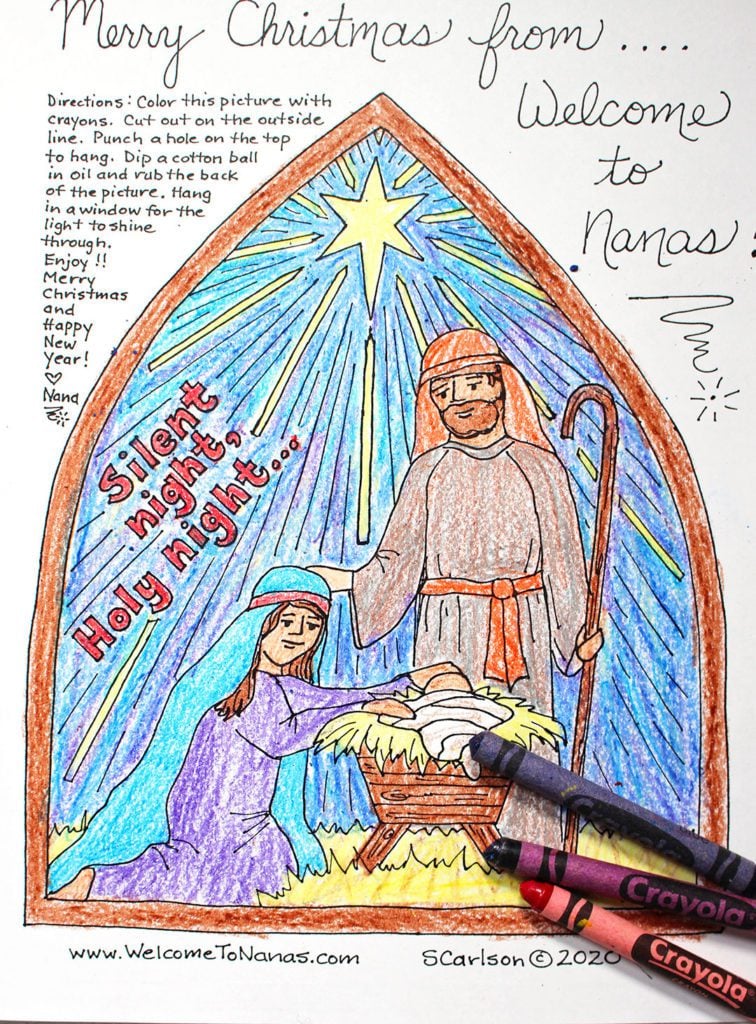 Merry Christmas from ....
Welcome
to
Nanas!
Directions: Color this picture with
crayons. Cut out on the outside
line. Punch a hole on the top
to hang. Dip a cotton ball
in oil and rub the back
of the picture. Hang
in a window for the
light to shine
through.
Enjoy!!
Merry
Christmas
and
Happy
New
Year!
♡
Nana
Silent
night,
Holy night...
Crayola
Crayola
Crayola
www.WelcomeToNanas.com
SCarlson©2020